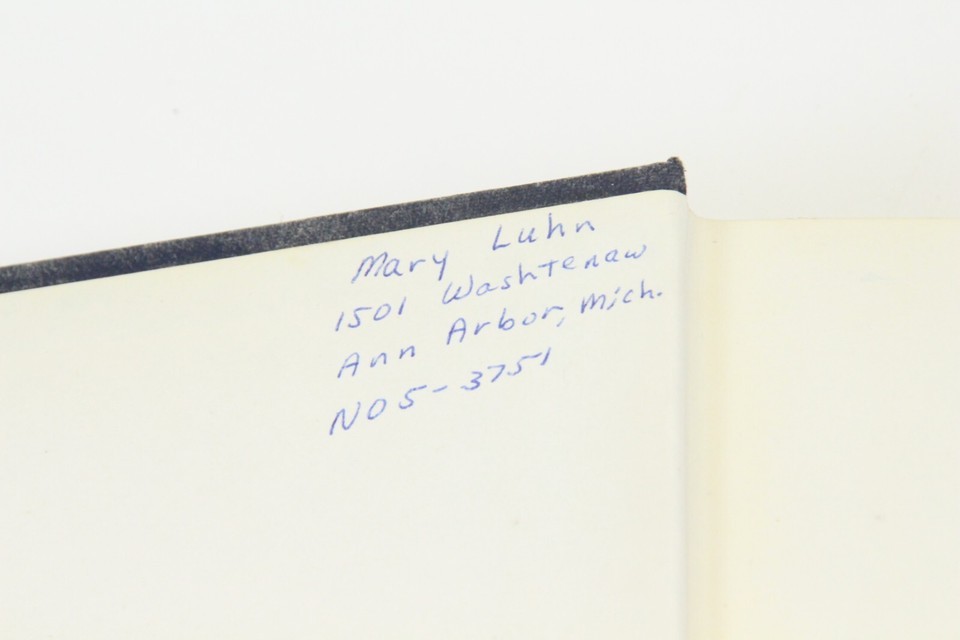 Mary Luhn
1501 Washtenaw
Ann Arbor, Mich.
NO5-3751